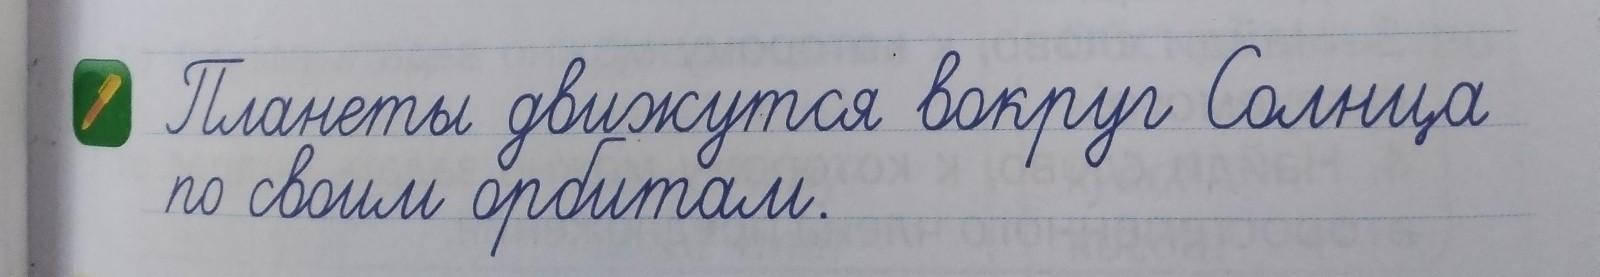 Планеты движутся вокруг Солнца
по своим орбитам.